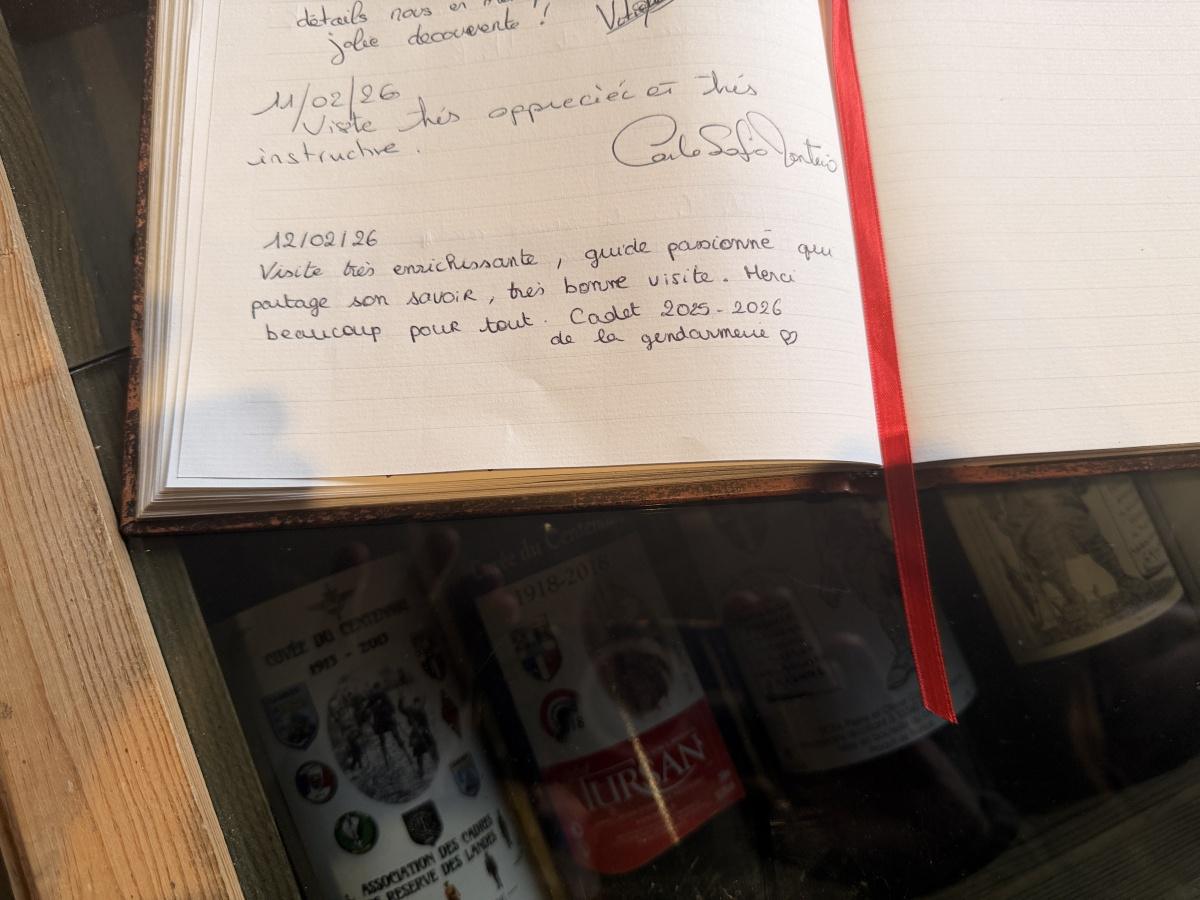 détails nous en
jolie decouverte !
11/02/26
Visite très appreciée et très
instructive.
Carlo
12/02/26
Visite très enrichissante, guide passionné qui
partage son savoir, très bonne visite. Merci
beaucoup pour tout. Cadet 2025-2026
de la gendarmerie ♡
CUVÉE DU CENTENAIRE
1913 - 2013
ASSOCIATION DES CADRES
RESERVE DES LANDES
du Centenaire
1918-2018
TURSAN